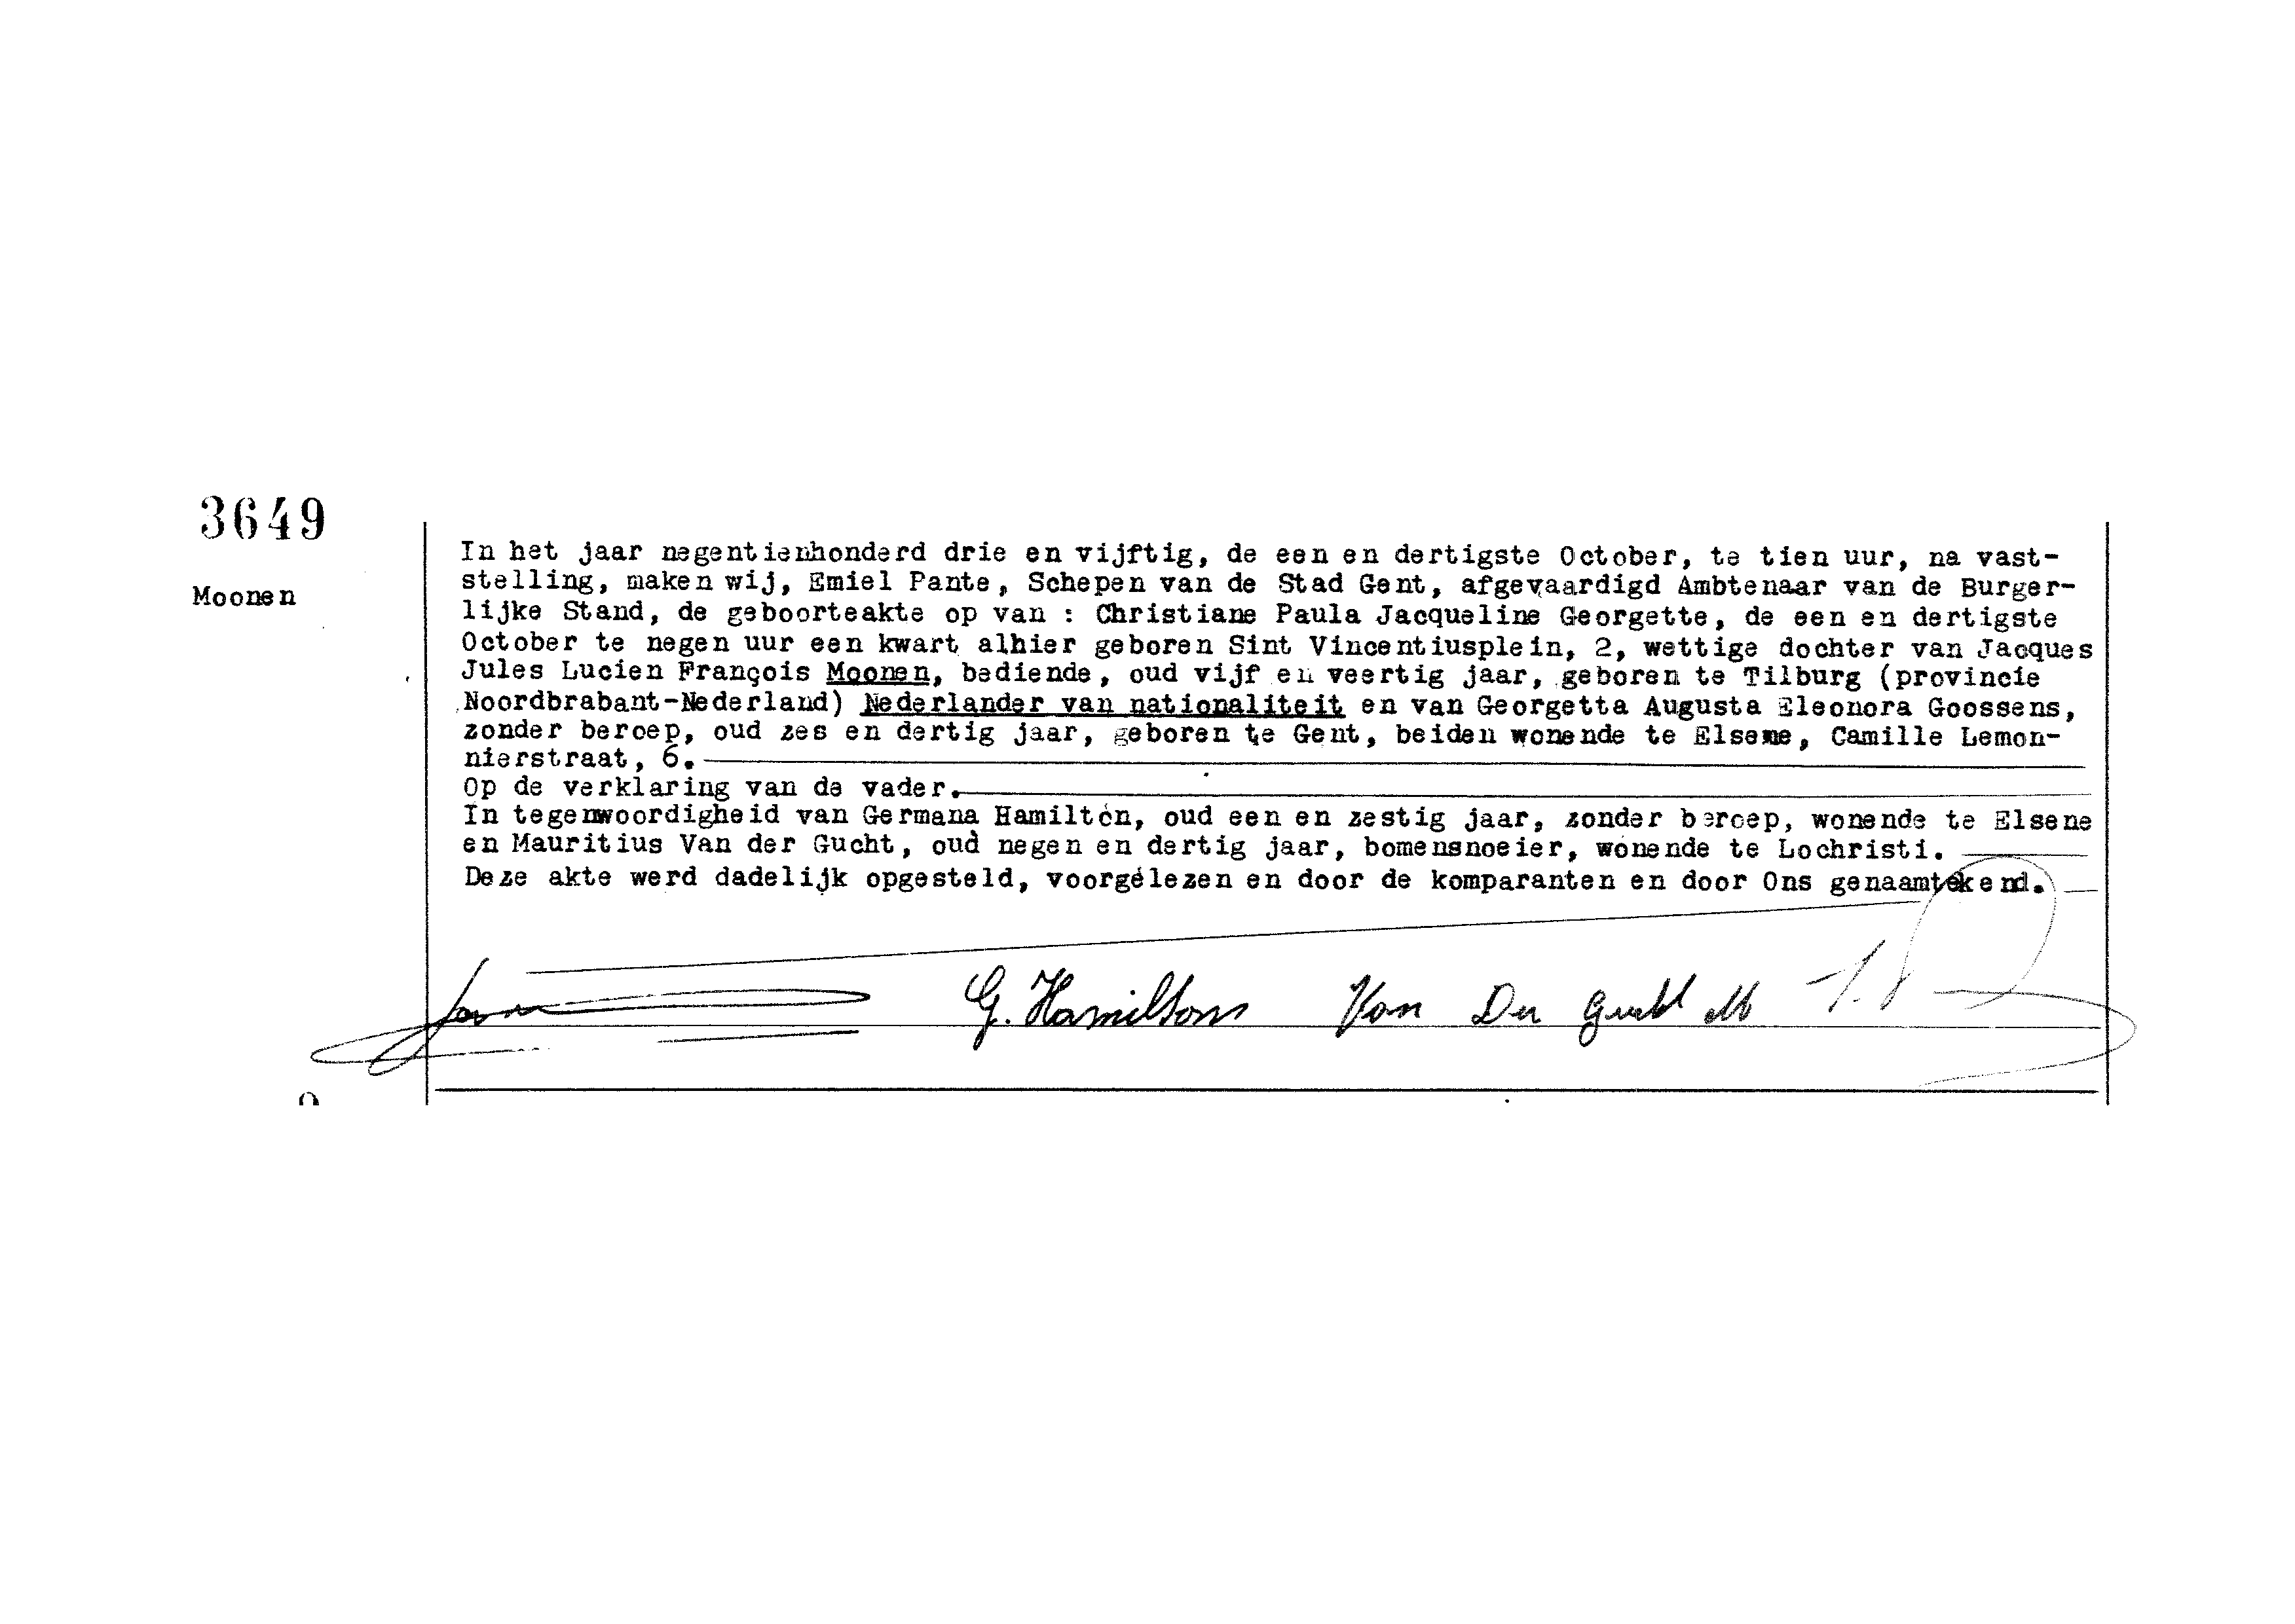 3649
Moonen
In het jaar negentienhonderd drie en vijftig, de een en dertigste October, te tien uur, na vast-
stelling, maken wij, Emiel Pante, Schepen van de Stad Gent, afgevaardigd Ambtenaar van de Burger-
lijke Stand, de geboorteakte op van : Christiane Paula Jacqueline Georgette, de een en dertigste
October te negen uur een kwart alhier geboren Sint Vincentiusplein, 2, wettige dochter van Jacques
Jules Lucien François Moonen, bediende, oud vijf en veertig jaar, geboren te Tilburg (provincie
Noordbrabant-Nederland) Nederlander van nationaliteit en van Georgetta Augusta Eleonora Goossens,
zonder beroep, oud zes en dertig jaar, geboren te Gent, beiden wonende te Elsene, Camille Lemon-
nierstraat, 6.
Op de verklaring van de vader.
In tegenwoordigheid van Germana Hamilton, oud een en zestig jaar, zonder beroep, wonende te Elsene
en Mauritius Van der Gucht, oud negen en dertig jaar, bomensnoeier, wonende te Lochristi.
Deze akte werd dadelijk opgesteld, voorgelezen en door de komparanten en door Ons genaamtekend.
G. Hamiltons Van Der Gucht M